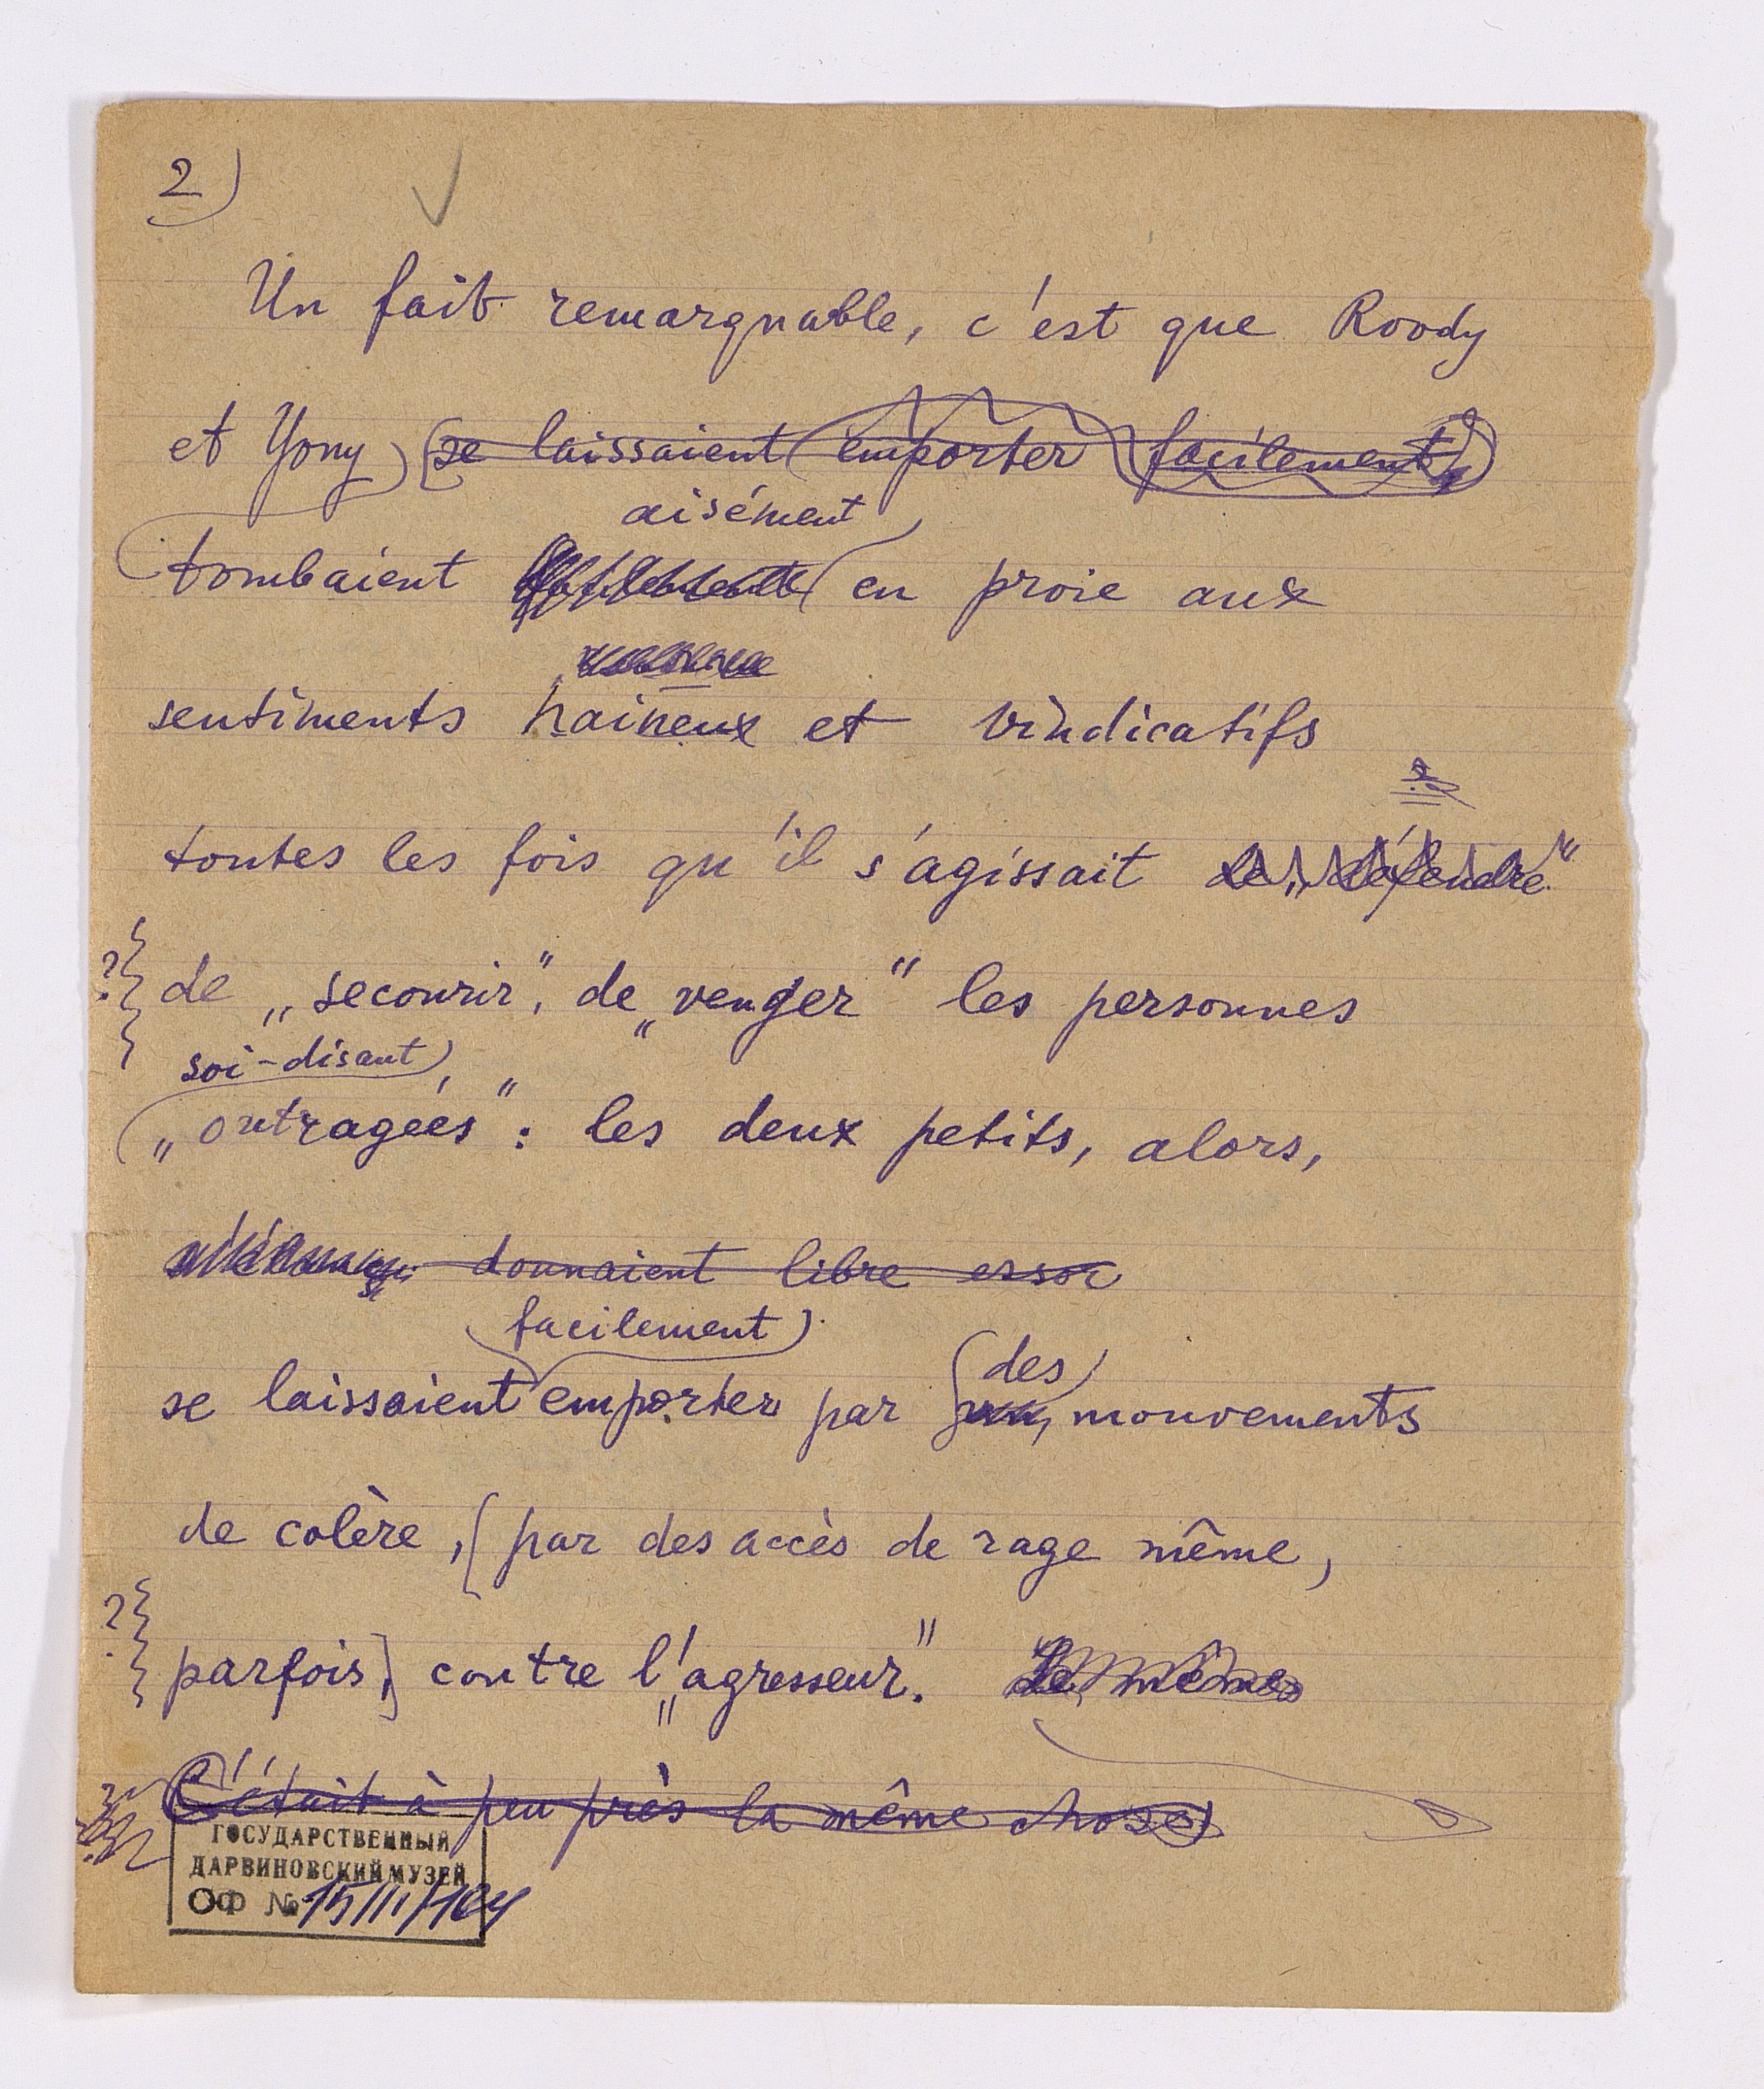 2)
Un fait remarquable, c'est que Roody
et Yony (se laissaient emporter facilement)
aisément
tombaient en proie aux
sentiments haineux et vindicatifs
?
toutes les fois qu'il s'agissait de „défendre"
? de „secourir", de „venger" les personnes
soi-disant,
„outragées": les deux petits, alors,
donnaient libre essor
facilement
se laissaient emporter par mouvements
des
de colère, (par des accès de rage même,
? parfois] contre l'„agresseur." Le même
C'était à peu près la même chose
ГОСУДАРСТВЕННЫЙ
ДАРВИНОВСКИЙ МУЗЕЙ
ОФ №